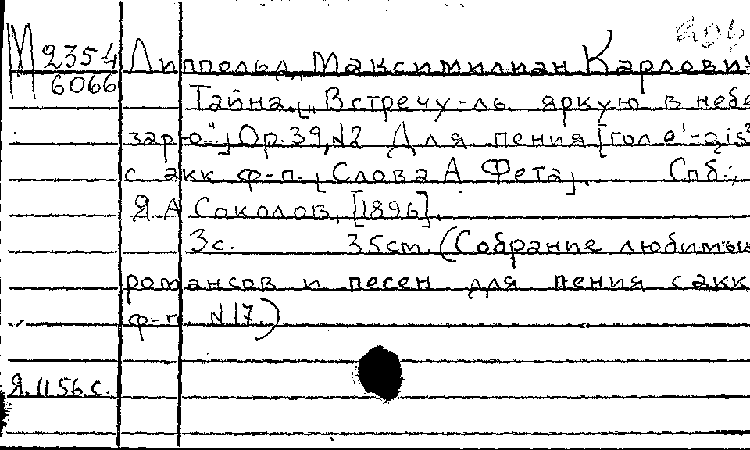 М 2354 Липпольд, Максимилиан Карлович
6066
Тайна. ["Встречу-ль яркую в небе
зарю"] Op. 39, №2 Для пения [гол e'-gis²]
с акк ф-п. [Слова А Фета]. Спб.,
Я. А Соколов, [1896].
3с. 35cm. (Собрание любимых
романсов и песен для пения с акк
ф-п №17.)
Я. 1156.с.